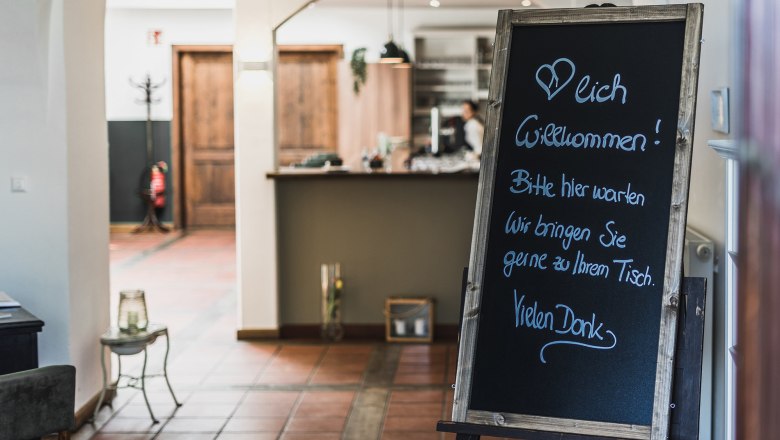 ♡lich
Willkommen!
Bitte hier warten
Wir bringen Sie
gerne zu Ihrem Tisch.
Vielen Dank